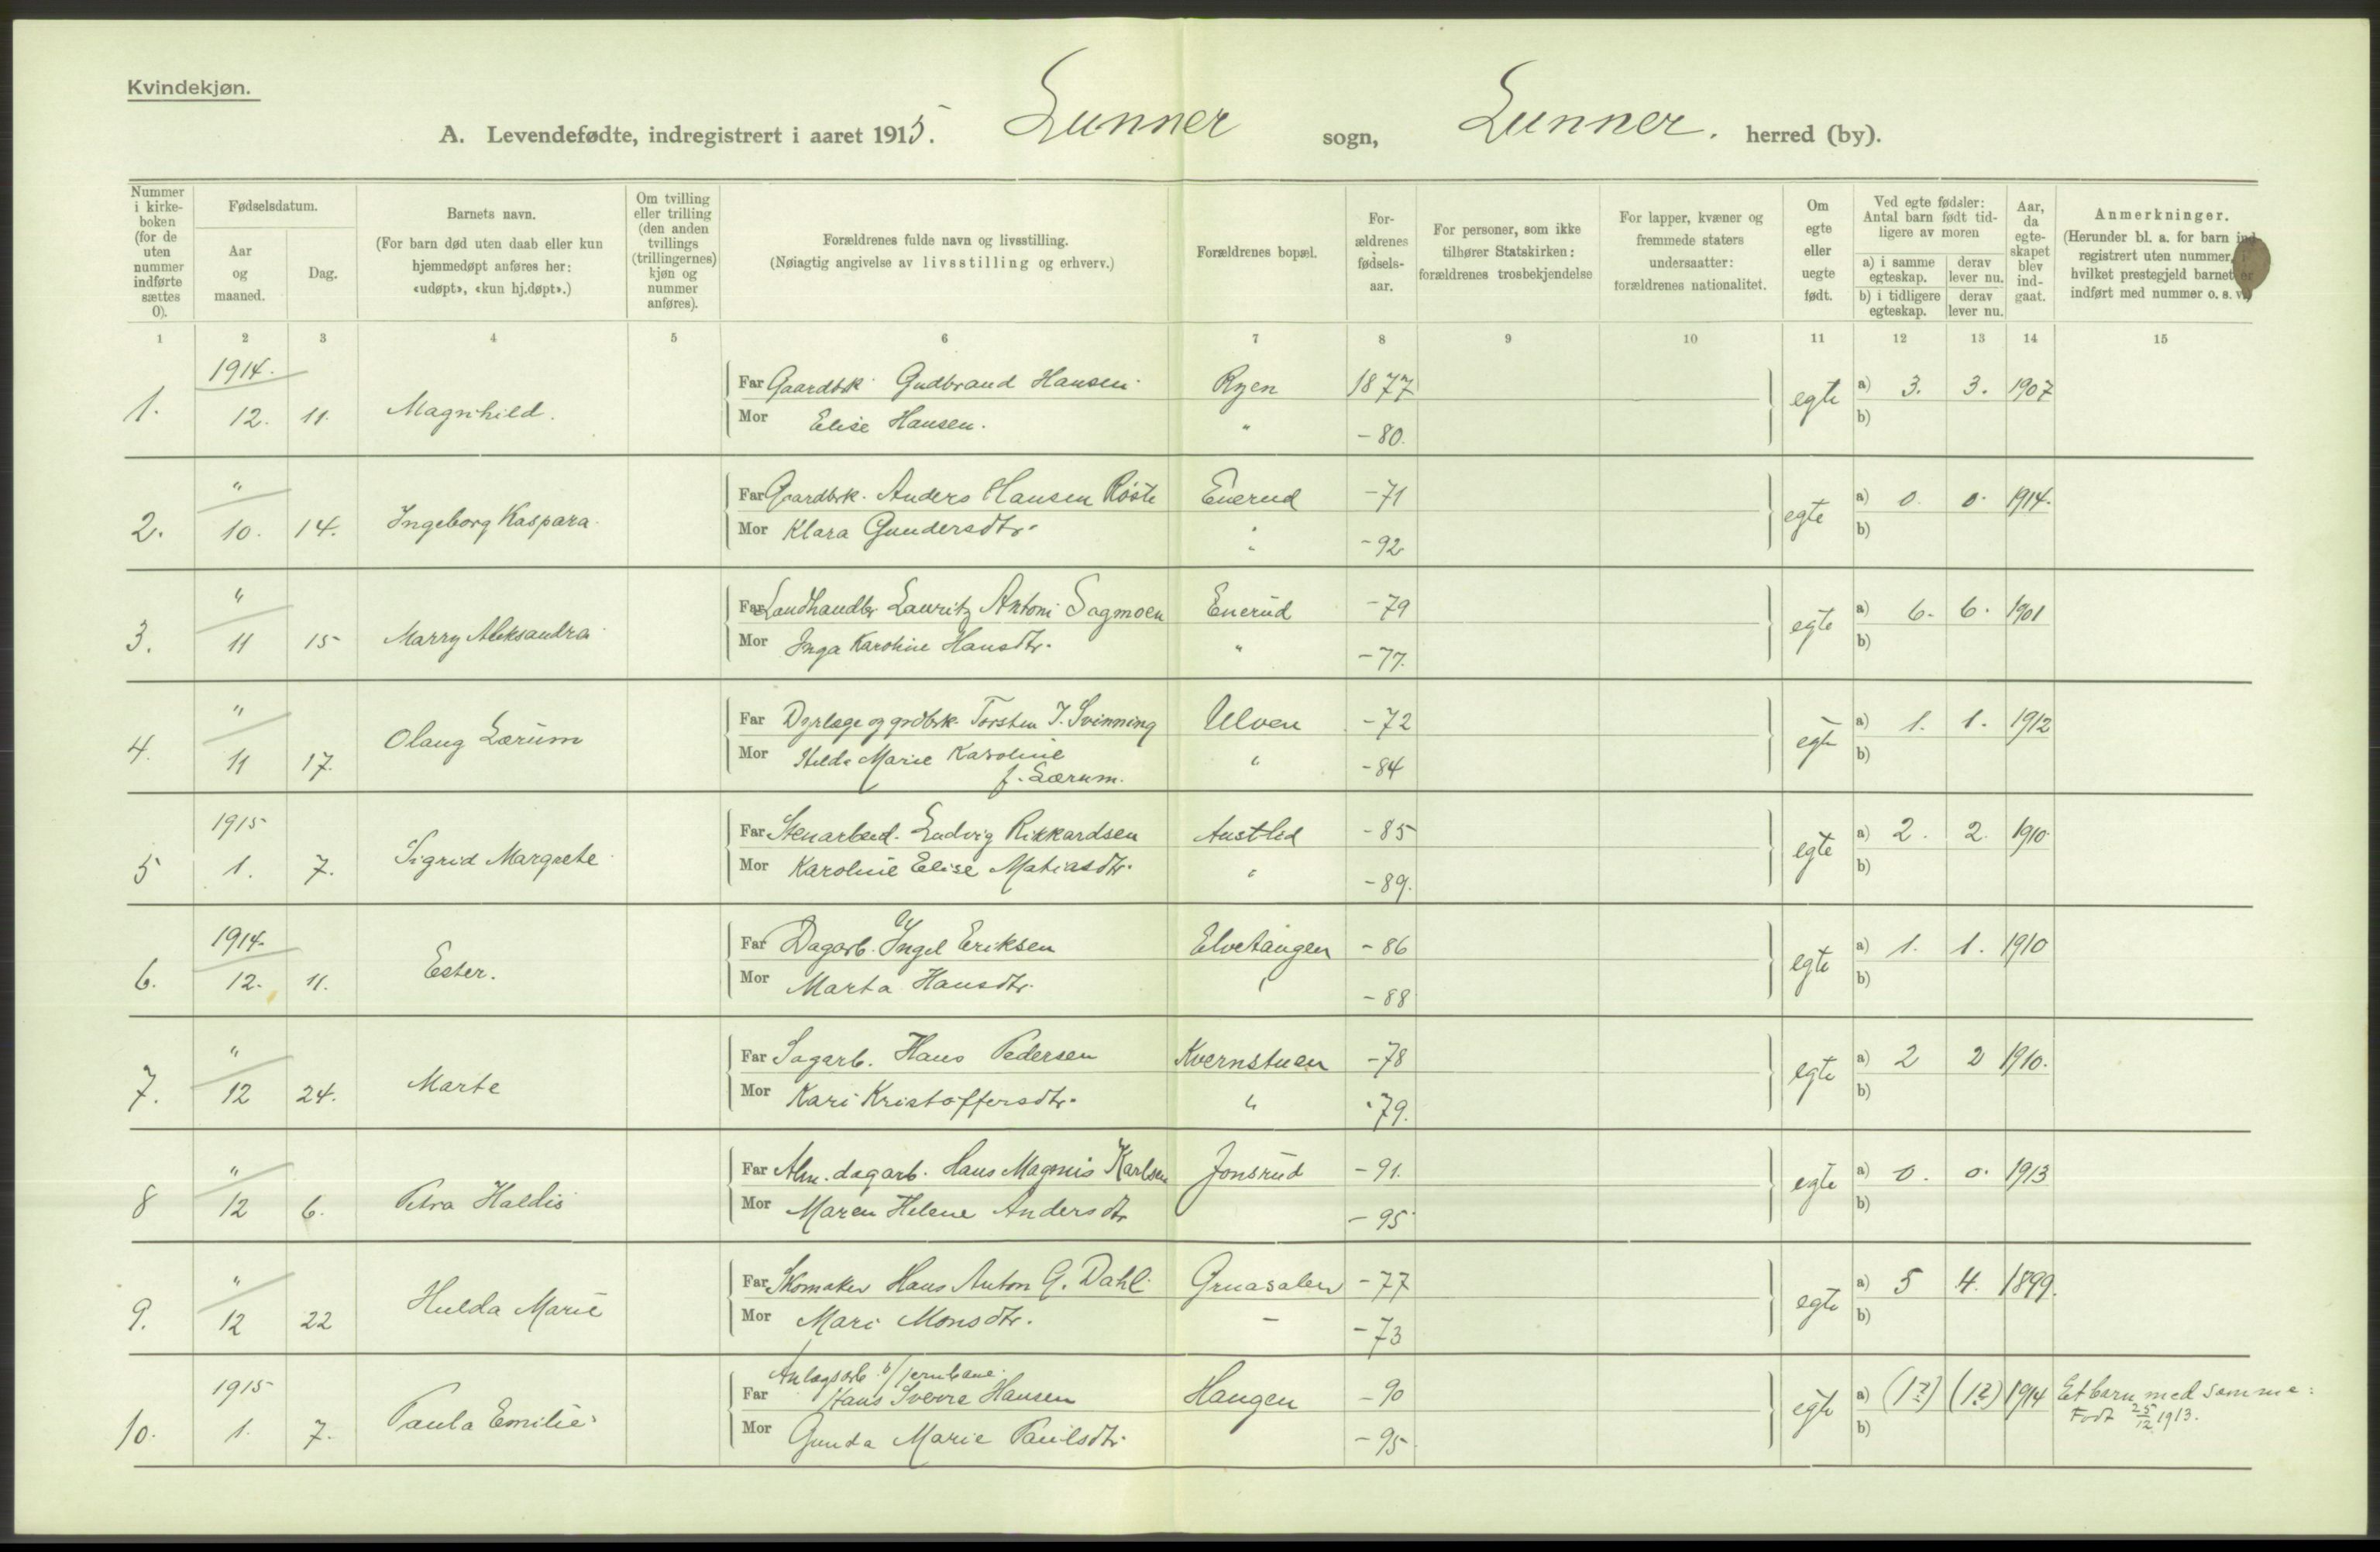 Kvindekjøn.
A. Levendefødte, indregistrert i aaret 1915. Lunner sogn, Lunner. herred (by).
Nummer i kirkeboken (for de uten nummer indførte sættes 0).
Fødselsdatum.
Aar og maaned.
Dag.
Barnets navn.
(For barn død uten daab eller kun hjemmedøpt anføres her: «udøpt», «kun hj.døpt».)
Om tvilling eller trilling (den anden tvillings (trillingernes) kjøn og nummer anføres).
Forældrenes fulde navn og livsstilling.
(Nøiagtig angivelse av livsstilling og erhverv.)
Forældrenes bopæl.
Forældrenes fødselsaar.
For personer, som ikke tilhører Statskirken: forældrenes trosbekjendelse
For lapper, kvæner og fremmede staters undersaatter: forældrenes nationalitet.
Om egte eller uegte født.
Ved egte fødsler: Antal barn født tidligere av moren
a) i samme egteskap. derav lever nu.
b) i tidligere egteskap. derav lever nu.
Aar, da egteskapet blev indgaat.
Anmerkninger.
(Herunder bl. a. for barn ind
registrert uten nummer,
hvilket prestegjeld barnet er
indført med nummer o. s. v.)
1 2 3 4 5 6 7 8 9 10 11 12 13 14 15
1914.
1. 12. 11. Magnhild. Far Gaardbk. Gudbrand Hansen. Ryen 1877 egte a) 3. 3. 1907
Mor Elise Hansen. " -80. b)
"
2. 10. 14. Ingeborg Kaspara. Far Gaardbrk. Anders Hansen Røste Enerud -71 egte a) 0. 0. 1914.
Mor Klara Gundersdtr. " -92 b)
"
3. 11 15 Marry Aleksandra Far Landhandlr. Lauritz Antoni Sagmoen Enerud -79 egte a) 6. 6. 1901
Mor Inga Karoline Hansdtr. " -77. b)
"
4. 11 17. Olaug Lærum Far Dyrlæge og grdbrk. Torsten J. Svinning Ulven -72 egte a) 1. 1. 1912
Mor Hilda Marie Karoline " -84 b)
f. Lærum.
1915
5 1. 7. Sigrid Margrete Far Stenarbeid. Ludvig Rikkardsen Austlid -85 egte a) 2. 2. 1910.
Mor Karoline Elise Matiasdtr. " -89. b)
1914.
6. 12. 11. Ester. Far Dagarb. Ingel Eriksen Elvetangen -86 egte a) 1. 1. 1910
Mor Marta Hansdtr. " -88 b)
"
7. 12 24. Marte Far Sagarb. Hans Pedersen Kvernstuen -78 egte a) 2 2 1910.
Mor Kari Kristoffersdtr. " -79. b)
"
8 12 6. Petra Haldis Far Alm. dagarb. Hans Magnus Karlsen Jonsrud -91. egte a) 0. 0. 1913
Mor Maren Helene Andersdtr -95 b)
"
9. 12 22 Hulda Marie Far Skomaker Hans Anton G. Dahl. Gruasalen -77 egte a) 5 4. 1899.
Mor Mari Monsdtr. - -73 b)
1915
Anlægsarb. v/jernbane
10. 1. 7. Paula Emilie Far Hans Sverre Hansen Haugen -90 egte a) (1?) (1?) 1914 Et barn med samme:
Født 25/12 1913.
Mor Gunda Marie Paulsdtr. -95 b)